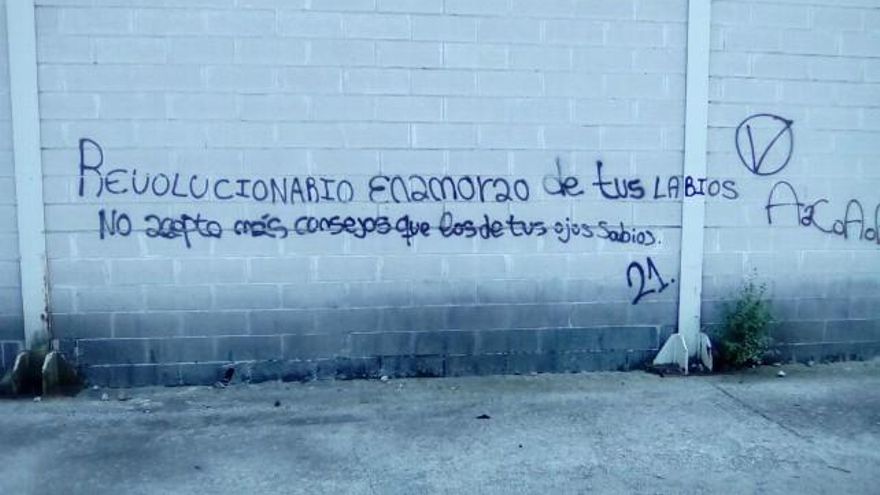 REVOLUCIONARIO enamorao de tus LABIOS
No acepto más consejos que los de tus ojos sabios.
21.
V